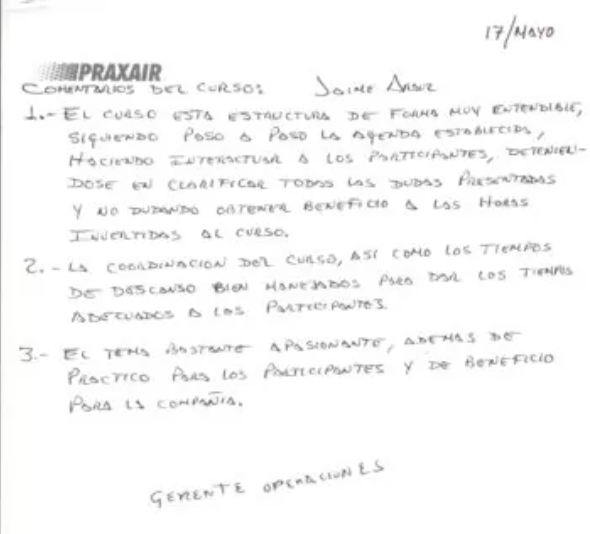 17/MAYO
PRAXAIR
COMENTARIOS DEL CURSO: JAIME
1.- EL CURSO ESTA ESTRUCTURA DE FORMA MUY ENTENDIBLE,
SIGUIENDO PASO A PASO LA AGENDA ESTABLECIDA,
HACIENDO INTERACTUAR A LOS PARTICIPANTES, DETENIEN-
DOSE EN CLARIFICAR TODAS LAS DUDAS PRESENTADAS
Y NO DUDANDO OBTENER BENEFICIO A LAS HORAS
INVERTIDAS AL CURSO.
2.- LA COORDINACION DEL CURSO, ASI COMO LOS TIEMPOS
DE DESCANSO BIEN MANEJADOS PARA DAR LOS TIEMPOS
ADECUADOS A LOS PARTICIPANTES.
3.- EL TEMA BASTANTE APASIONANTE, ADEMAS DE
PRACTICO PARA LOS PARTICIPANTES Y DE BENEFICIO
PARA LA COMPAÑIA.
GERENTE OPERACIONES